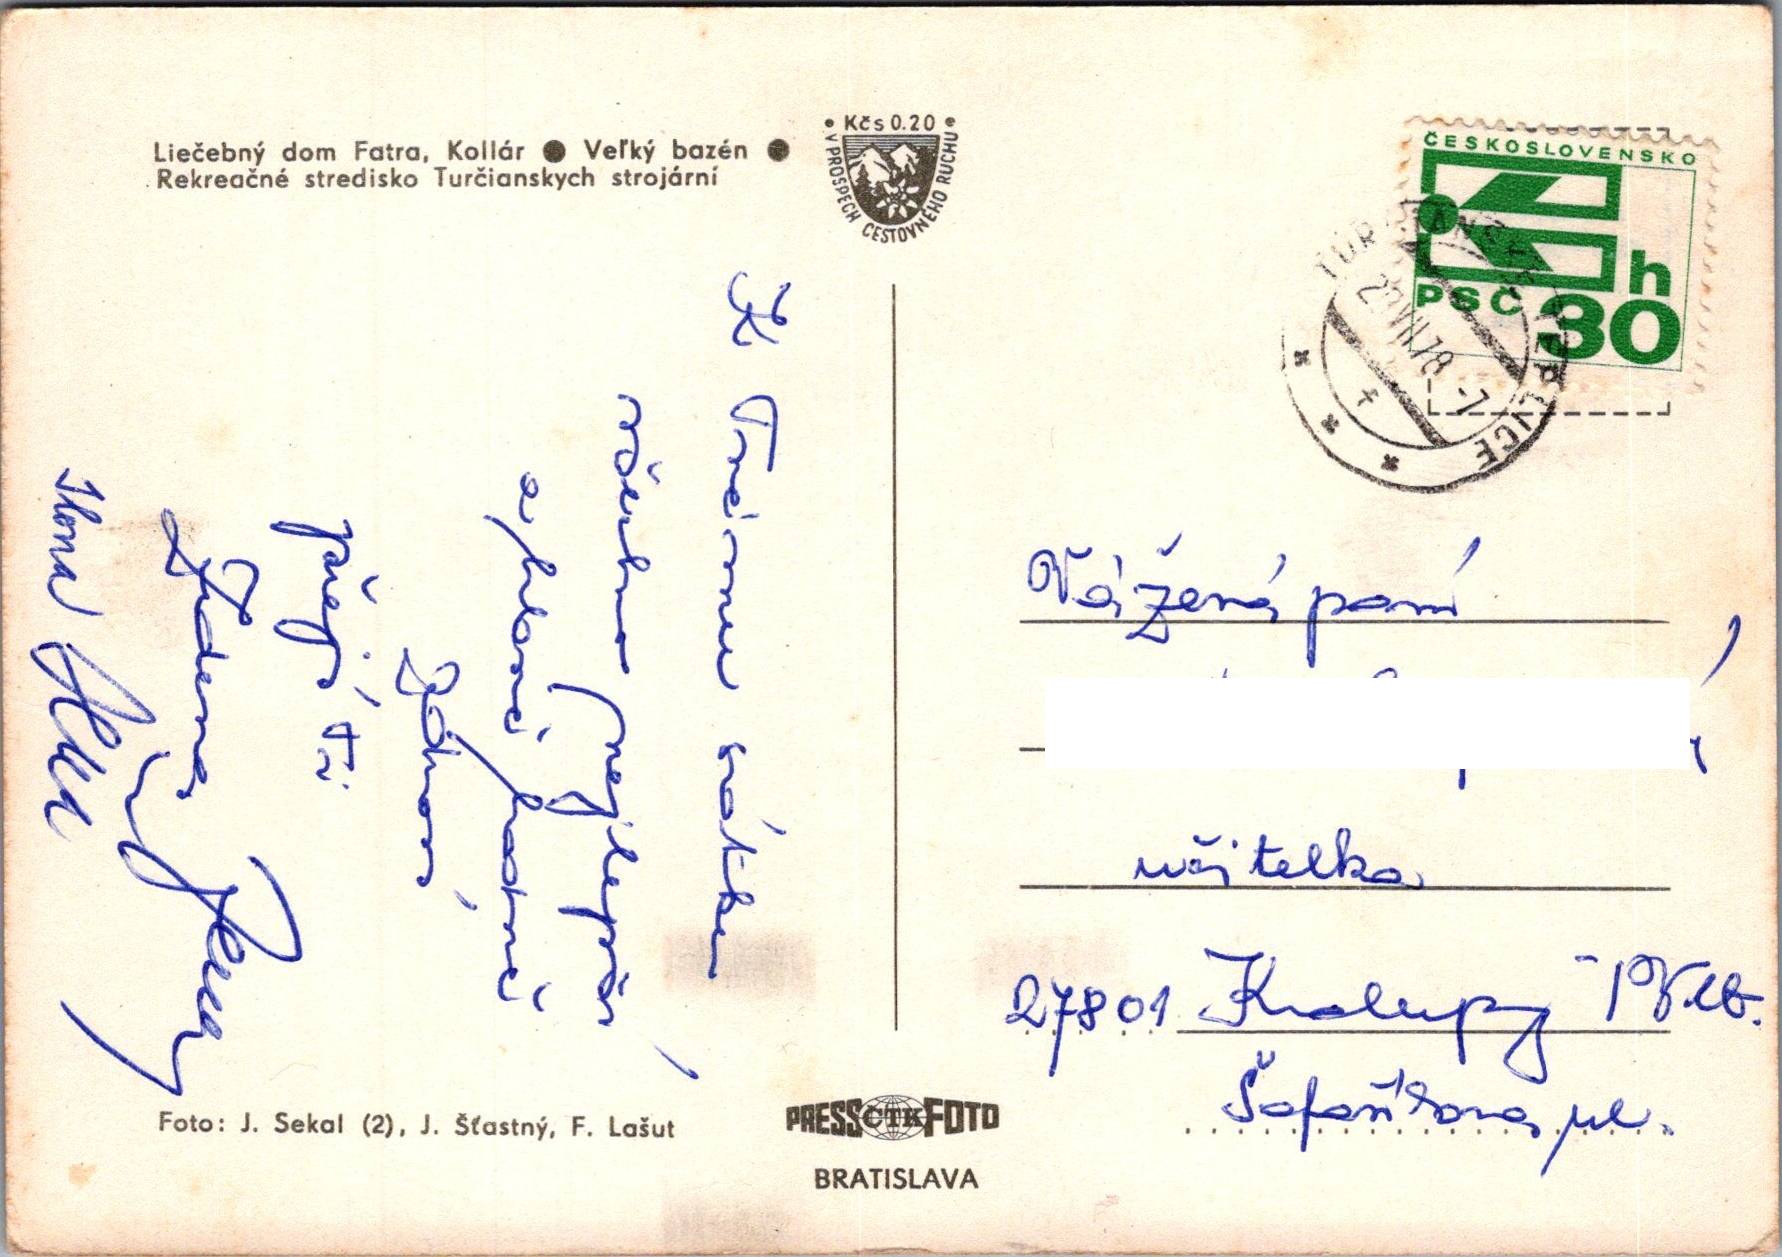 Liečebný dom Fatra, Kollár ● Veľký bazén ●
Rekreačné stredisko Turčianskych strojární
• Kčs 0.20 •
V PROSPECH CESTOVNÉHO RUCHU
ČESKOSLOVENSKO
PSČ
30 h
TURČIANSKE TEPLICE
VII.78 -7
K Tvému svátku
všechno nejlepší
a hlavně hodně
zdraví
přejí Ti
Zdena
Ilona
Vážená paní
učitelka
27801 Kralupy n/Vlt.
Šafaříkova ul.
Foto: J. Sekal (2), J. Šťastný, F. Lašut
PRESS ČTK FOTO
BRATISLAVA